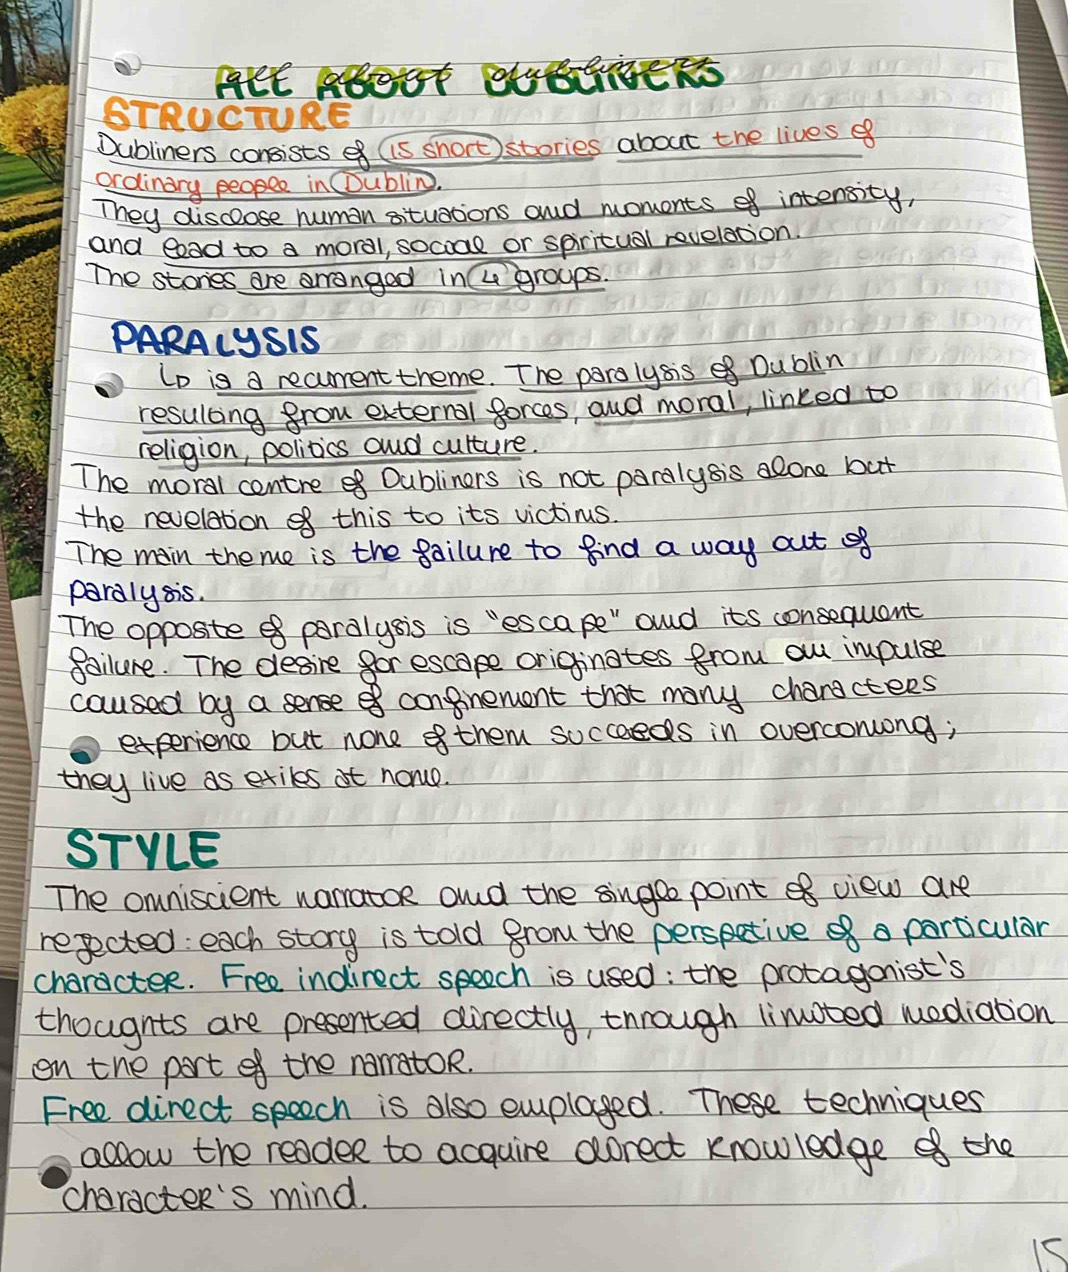 All About DUBLINERS
STRUCTURE
Dubliners consists of 15 short stories about the lives of
ordinary people in Dublin.
They disclose human situations and moments of intensity,
and lead to a moral, social or spiritual revelation.
The stories are arranged in 4 groups.
PARALYSIS
↳ is a recurrent theme. The paralysis of Dublin
resulting from external forces, and moral, linked to
religion, politics and culture.
The moral centre of Dubliners is not paralysis alone but
the revelation of this to its victims.
The main theme is the failure to find a way out of
paralysis.
The opposite of paralysis is "escape" and its consequent
failure. The desire for escape originates from an impulse
caused by a sense of confinement that many characters
experience but none of them succeeds in overcoming;
they live as exiles at home.
STYLE
The omniscient narrator and the single point of view are
rejected: each story is told from the perspective of a particular
character. Free indirect speech is used: the protagonist's
thoughts are presented directly, through limited mediation
on the part of the narrator.
Free direct speech is also employed. These techniques
allow the reader to acquire direct knowledge of the
character's mind.
15